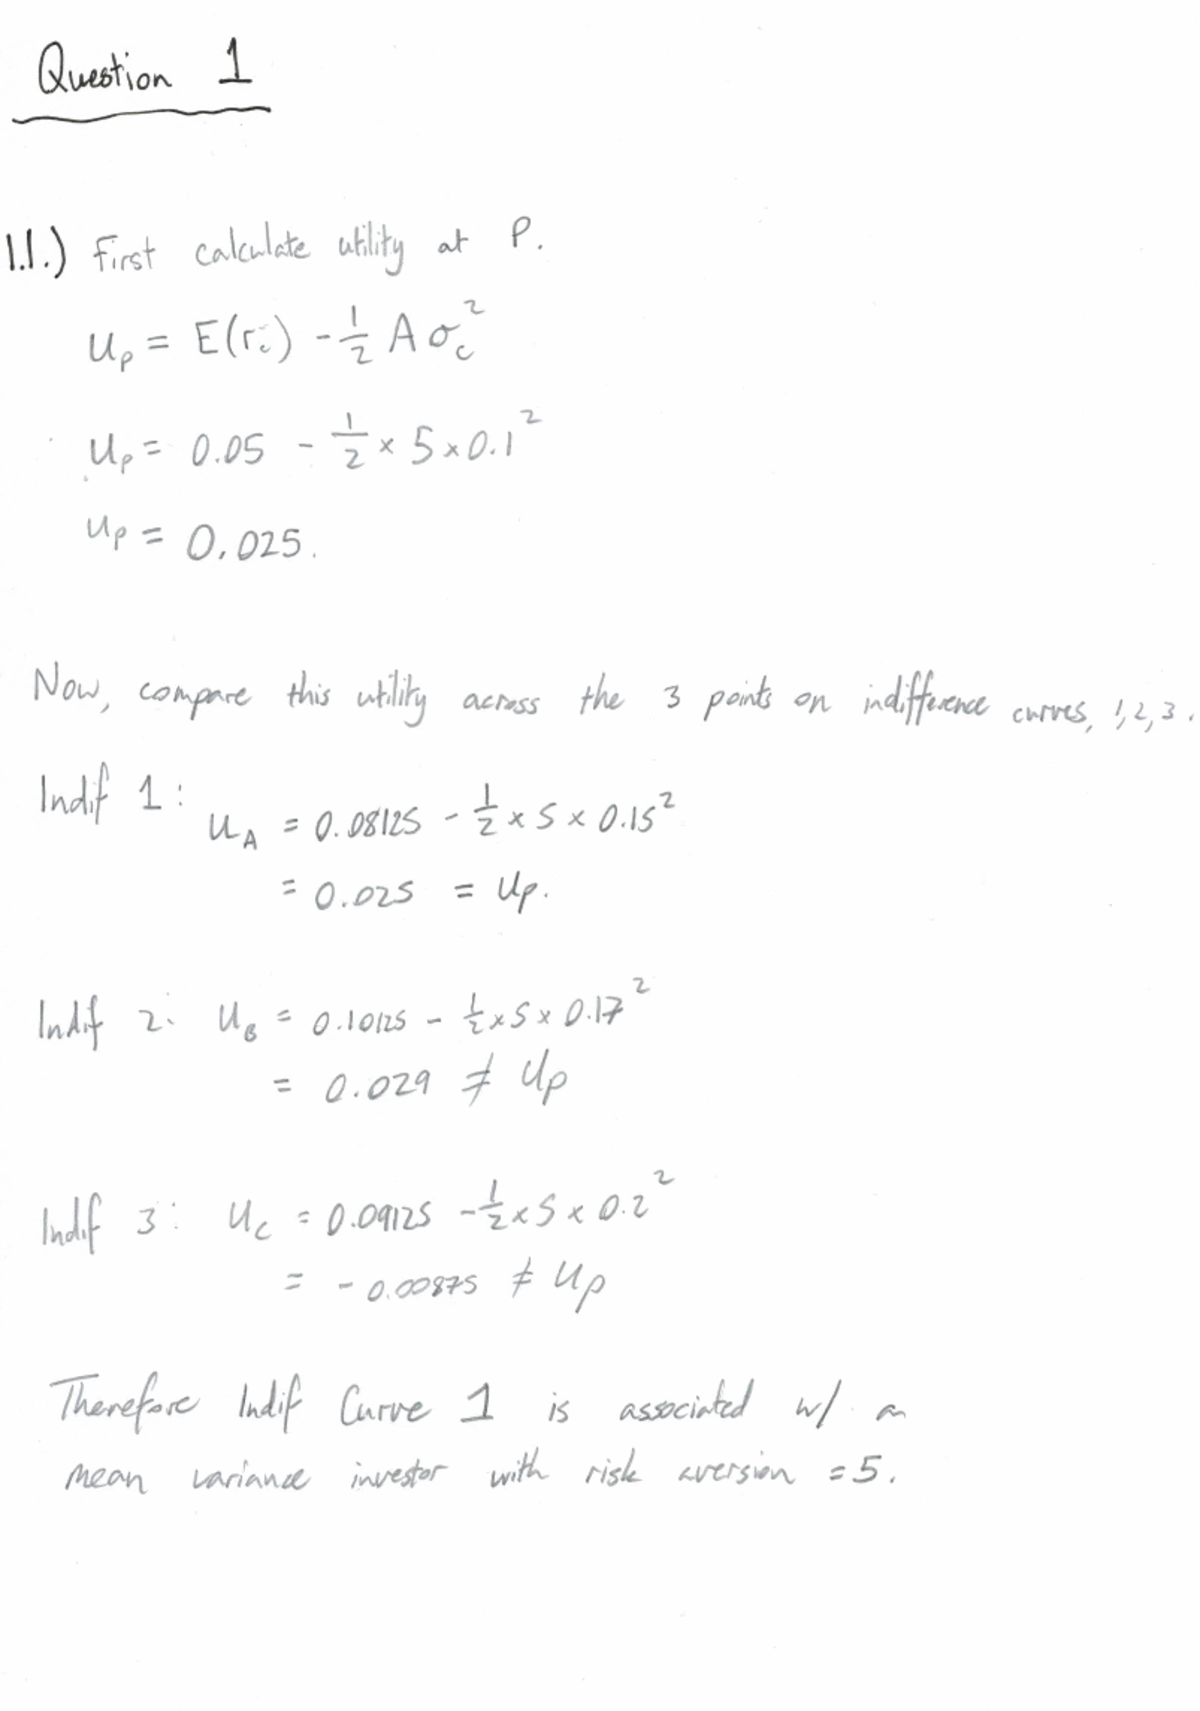 Question 1
1.1.) First calculate utility at P.
Up = E(rc) - 1/2 A σc²
Up = 0.05 - 1/2 × 5 × 0.1²
Up = 0.025.
Now, compare this utility across the 3 points on indifference curves, 1, 2, 3.
Indif 1:
UA = 0.08125 - 1/2 × 5 × 0.15²
= 0.025 = Up.
Indif 2: UB = 0.10125 - 1/2 × 5 × 0.17²
= 0.029 ≠ Up
Indif 3: UC = 0.09125 - 1/2 × 5 × 0.2²
= -0.00875 ≠ Up
Therefore Indif Curve 1 is associated w/ an
mean variance investor with risk aversion = 5.